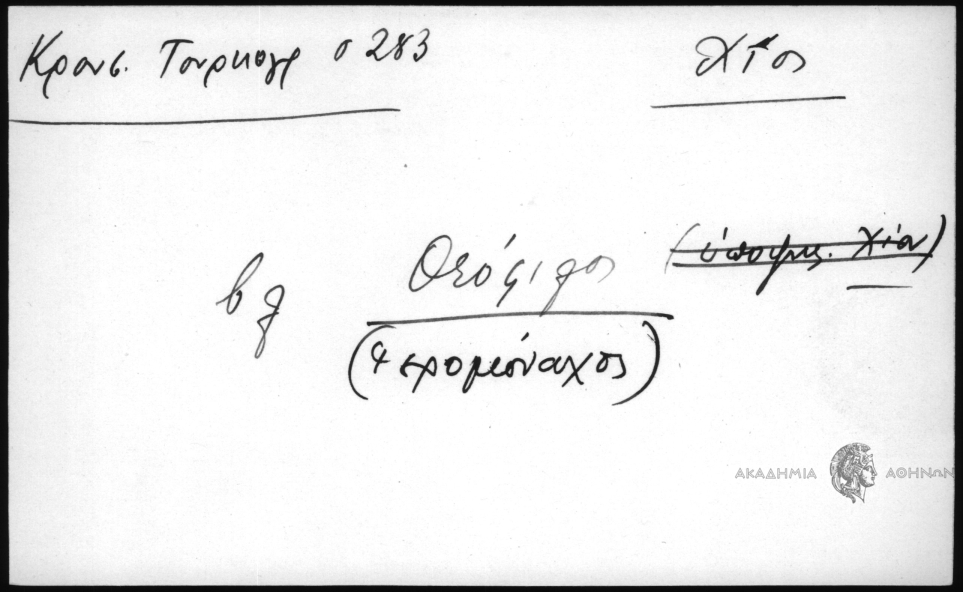 Κρουσ. Τουρκογρ σ 283
Χίος
βλ Θεόφιλος (ὑποψηφ. Χίου)
(Ἱερομόναχος)
ΑΚΑΔΗΜΙΑ ΑΘΗΝΩΝ